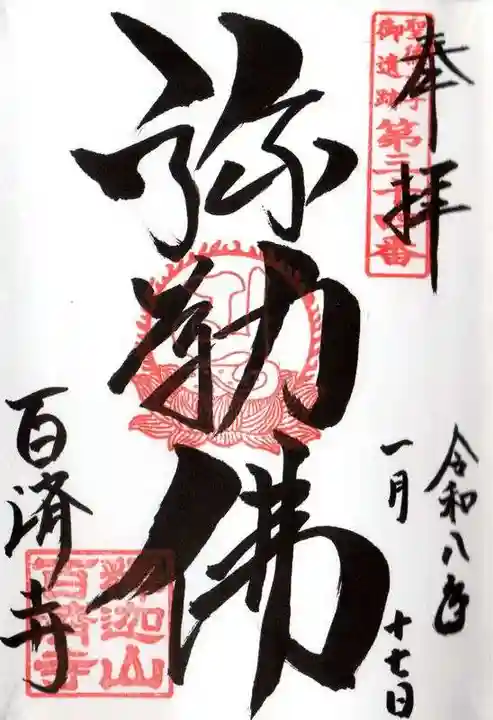 奉拝
聖徳太子
御遺跡第三十四番
令和八年
一月十七日
弥勒佛
百済寺
釈迦山
百済寺